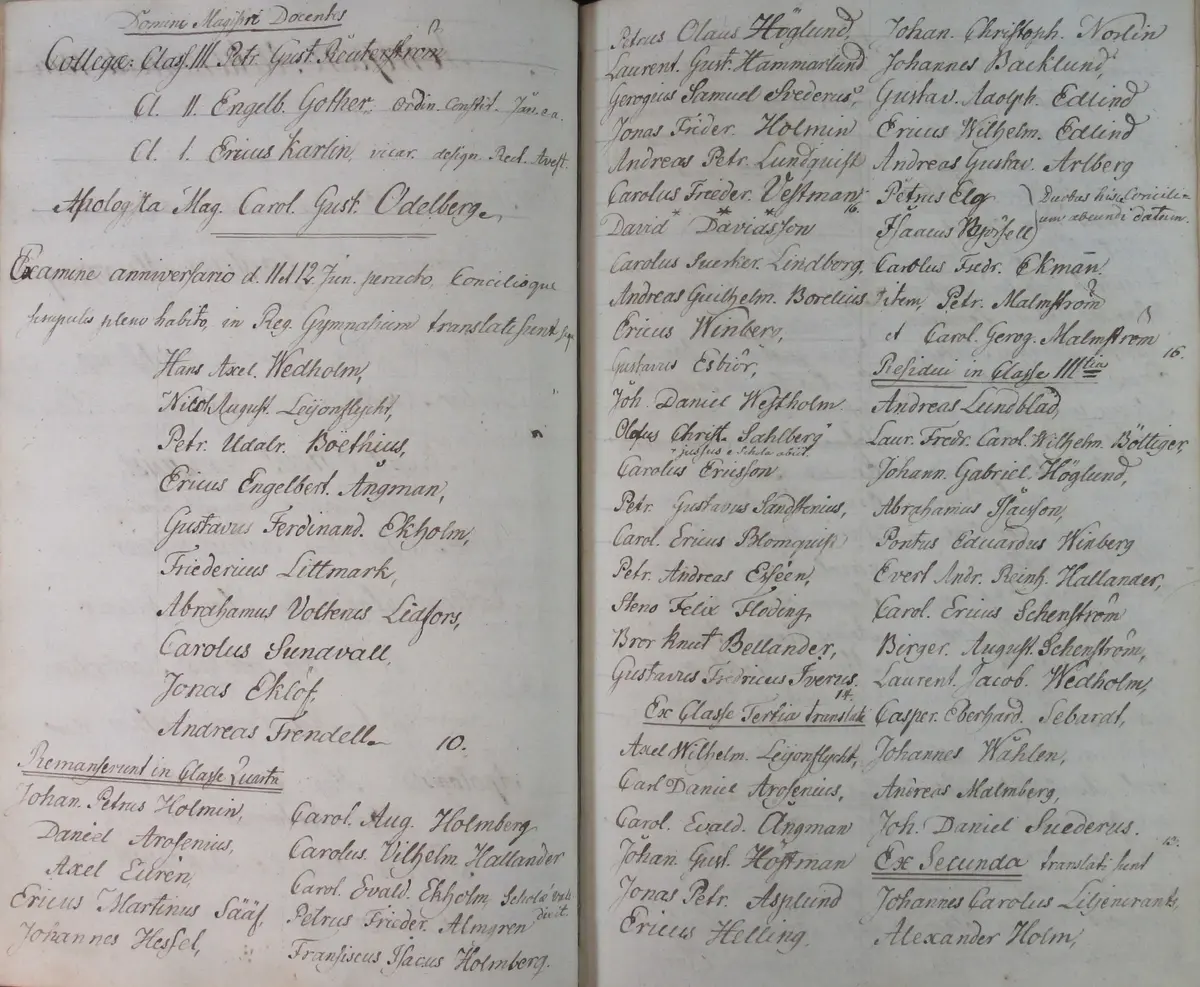 Domini Magistri Docentes
Collegæ: Class. III Petr. Gust. Reuterström
Cl. II. Engelb. Gother, ordin. constit.
Cl. I. Ericus Karlin, vicar. design. Rect. Avest.
Apologista Mag. Carol. Gust. Odelberg.
Examine anniversario d. 11 et 12 Jun. peracto, Concilioque
scrupulis pleno habito, in Reg. Gymnasium translati sunt
Hans Axel. Wedholm,
Nicol August. Leijonflycht,
Petr. Udalr. Boëthius,
Ericus Engelbert. Ångman,
Gustavus Ferdinand. Ekholm,
Friedericus Littmark,
Abrahamus Volterus Liafors,
Carolus Sundvall,
Jonas Eklöf,
Andreas Frendell. 10.
Remanserunt in Classe Quarta
Johan. Petrus Holmin,
Daniel Arosenius,
Axel Eurén,
Ericus Martinus Sääf,
Johannes Hessel,
Carol. Aug. Holmberg
Carolus. Vilhelm. Hallander
Carol. Evald. Ekholm, Scholæ vale
dixit.
Petrus Frieder. Almgren
Fransiscus Isacus Holmberg.
Petrus Olaus Höglund,
Laurent. Gust. Hammarlund
Gerogius Samuel Svederus,
Jonas Frider. Holmin
Andreas Petr. Lundquist
Carolus Frieder. Vestman 16.
David Davidsson
Carolus Suerker. Lindborg,
Andreas Guilhelm. Borelius
Ericus Winberg,
Gustavus Esbiör,
Joh. Daniel Westholm
Olofus Christ. Sahlberg
jussus e Schola abiit.
Carolus Ericsson
Petr. Gustavus Sandstenius,
Carol. Ericus Blomquist
Petr. Andreas Esséen,
Steno Felix Floding,
Bror Knut Bellander,
Gustavus Fredricus Iverus. 14.
Ex Classe Tertia translati
Axel Wilhelm. Leijonflycht,
Carl Daniel Arosenius,
Carol. Evald. Ångman
Johan. Gust. Höffman
Jonas Petr. Asplund
Ericus Helling.
Johan. Christoph. Norlin
Johannes Backlund,
Gustav. Adolph. Edlind
Ericus Wilhelm. Edlind
Andreas Gustav. Arlberg
Petrus Elg
Isaacus Byörsell
Duobus his Concili-
um abeundi datum.
Carolus Fredr. Ekman.
item, Petr. Malmström
et Carol. Gerog. Malmström
16.
Residui in Classe IIItia
Andreas Lundblad,
Laur. Fredr. Carol. Wilhelm. Böttiger,
Johann. Gabriel. Höglund,
Abrahamus Isacsson,
Pontus Eduardus Winberg
Evert Andr. Reinh. Hallander,
Carol. Ericus Schenström
Birger. August. Schenström,
Laurent. Jacob. Wedholm,
Casper. Eberhard. Sebardt,
Johannes Wåhlen,
Andreas Malmberg,
Joh. Daniel Suederus. 13.
Ex Secunda translati sunt
Johannes Carolus Liljencrants,
Alexander Holm,